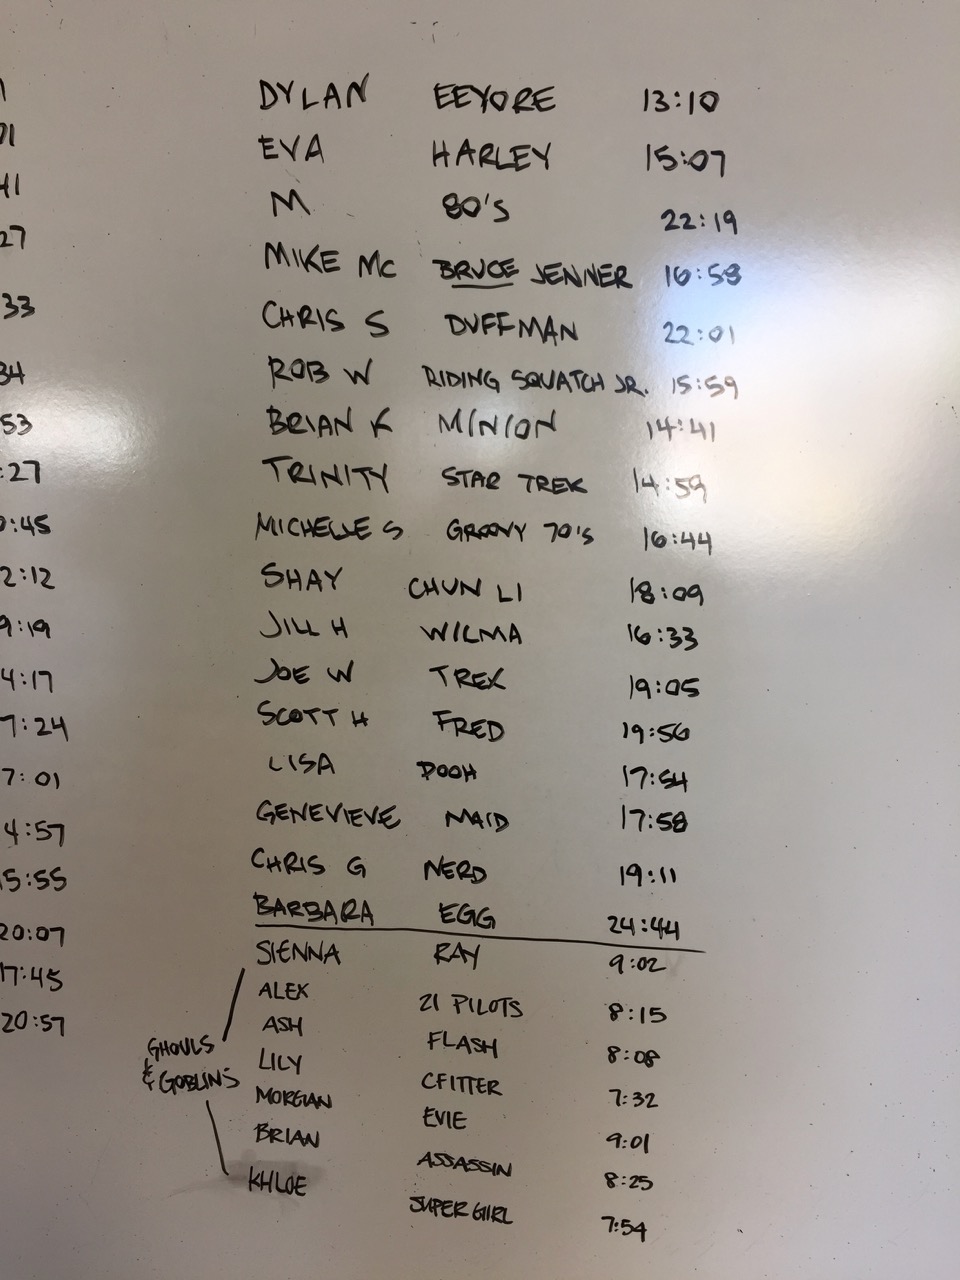 1
01
41
27
33
34
53
:27
0:45
2:12
9:19
4:17
7:24
7:01
4:57
5:55
20:07
17:45
20:57
DYLAN EEYORE 13:10
EVA HARLEY 15:07
M 80'S 22:19
MIKE MC BRUCE JENNER 16:58
CHRIS S DUFFMAN 22:01
ROB W RIDING SQUATCH JR. 15:59
BRIAN K MINION 14:41
TRINITY STAR TREK 14:59
MICHELLE S GROOVY 70'S 16:44
SHAY CHUN LI 18:09
JILL H WILMA 16:33
JOE W TREX 19:05
SCOTT H FRED 19:56
LISA POOH 17:54
GENEVIEVE MAID 17:58
CHRIS G NERD 19:11
BARBARA EGG 24:44
GHOULS
& GOBLINS
SIENNA RAY 9:02
ALEX 21 PILOTS 8:15
ASH FLASH 8:08
LILY CFITTER 7:32
MORGAN EVIE 9:01
BRIAN ASSASSIN 8:25
KHLOE SUPER GIRL 7:54